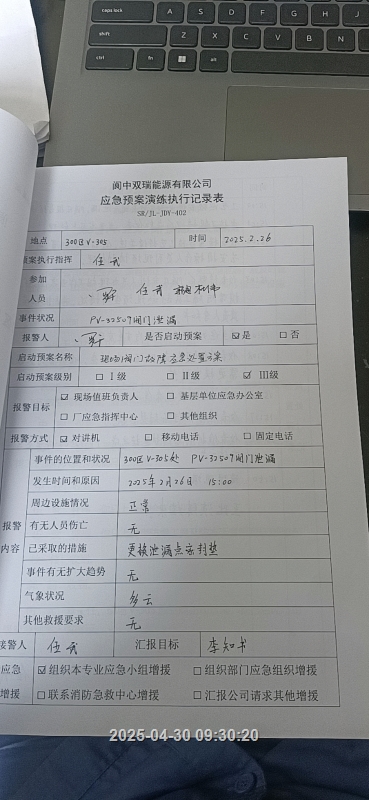 caps lock
A S D F G H J
shift
Z X C V B N
ctrl fn alt
阆中双瑞能源有限公司
应急预案演练执行记录表
SR/JL-JDY-402
地点 300区V-305 时间 2025.2.26
预案执行指挥 任武
参加人员 任武
事件状况 PV-32507阀门泄漏
报警人 是否启动预案 ☑是 □否
启动预案名称 现场阀门故障应急处置方案
启动预案级别 □ Ⅰ级 □ Ⅱ级 ☑ Ⅲ级
报警目标 ☑ 现场值班负责人 □ 基层单位应急办公室
□ 厂应急指挥中心 □ 其他组织
报警方式 ☑ 对讲机 □ 移动电话 □ 固定电话
报警内容
事件的位置和状况 300区V-305处 PV-32507阀门泄漏
发生时间和原因 2025年2月26日 15:00
周边设施情况 正常
有无人员伤亡 无
已采取的措施 更换泄漏点密封垫
事件有无扩大趋势 无
气象状况 多云
其他救援要求 无
接警人 任武 汇报目标 李知书
应急增援 ☑组织本专业应急小组增援 □组织部门应急组织增援
□联系消防急救中心增援 □汇报公司请求其他增援
2025-04-30 09:30:20